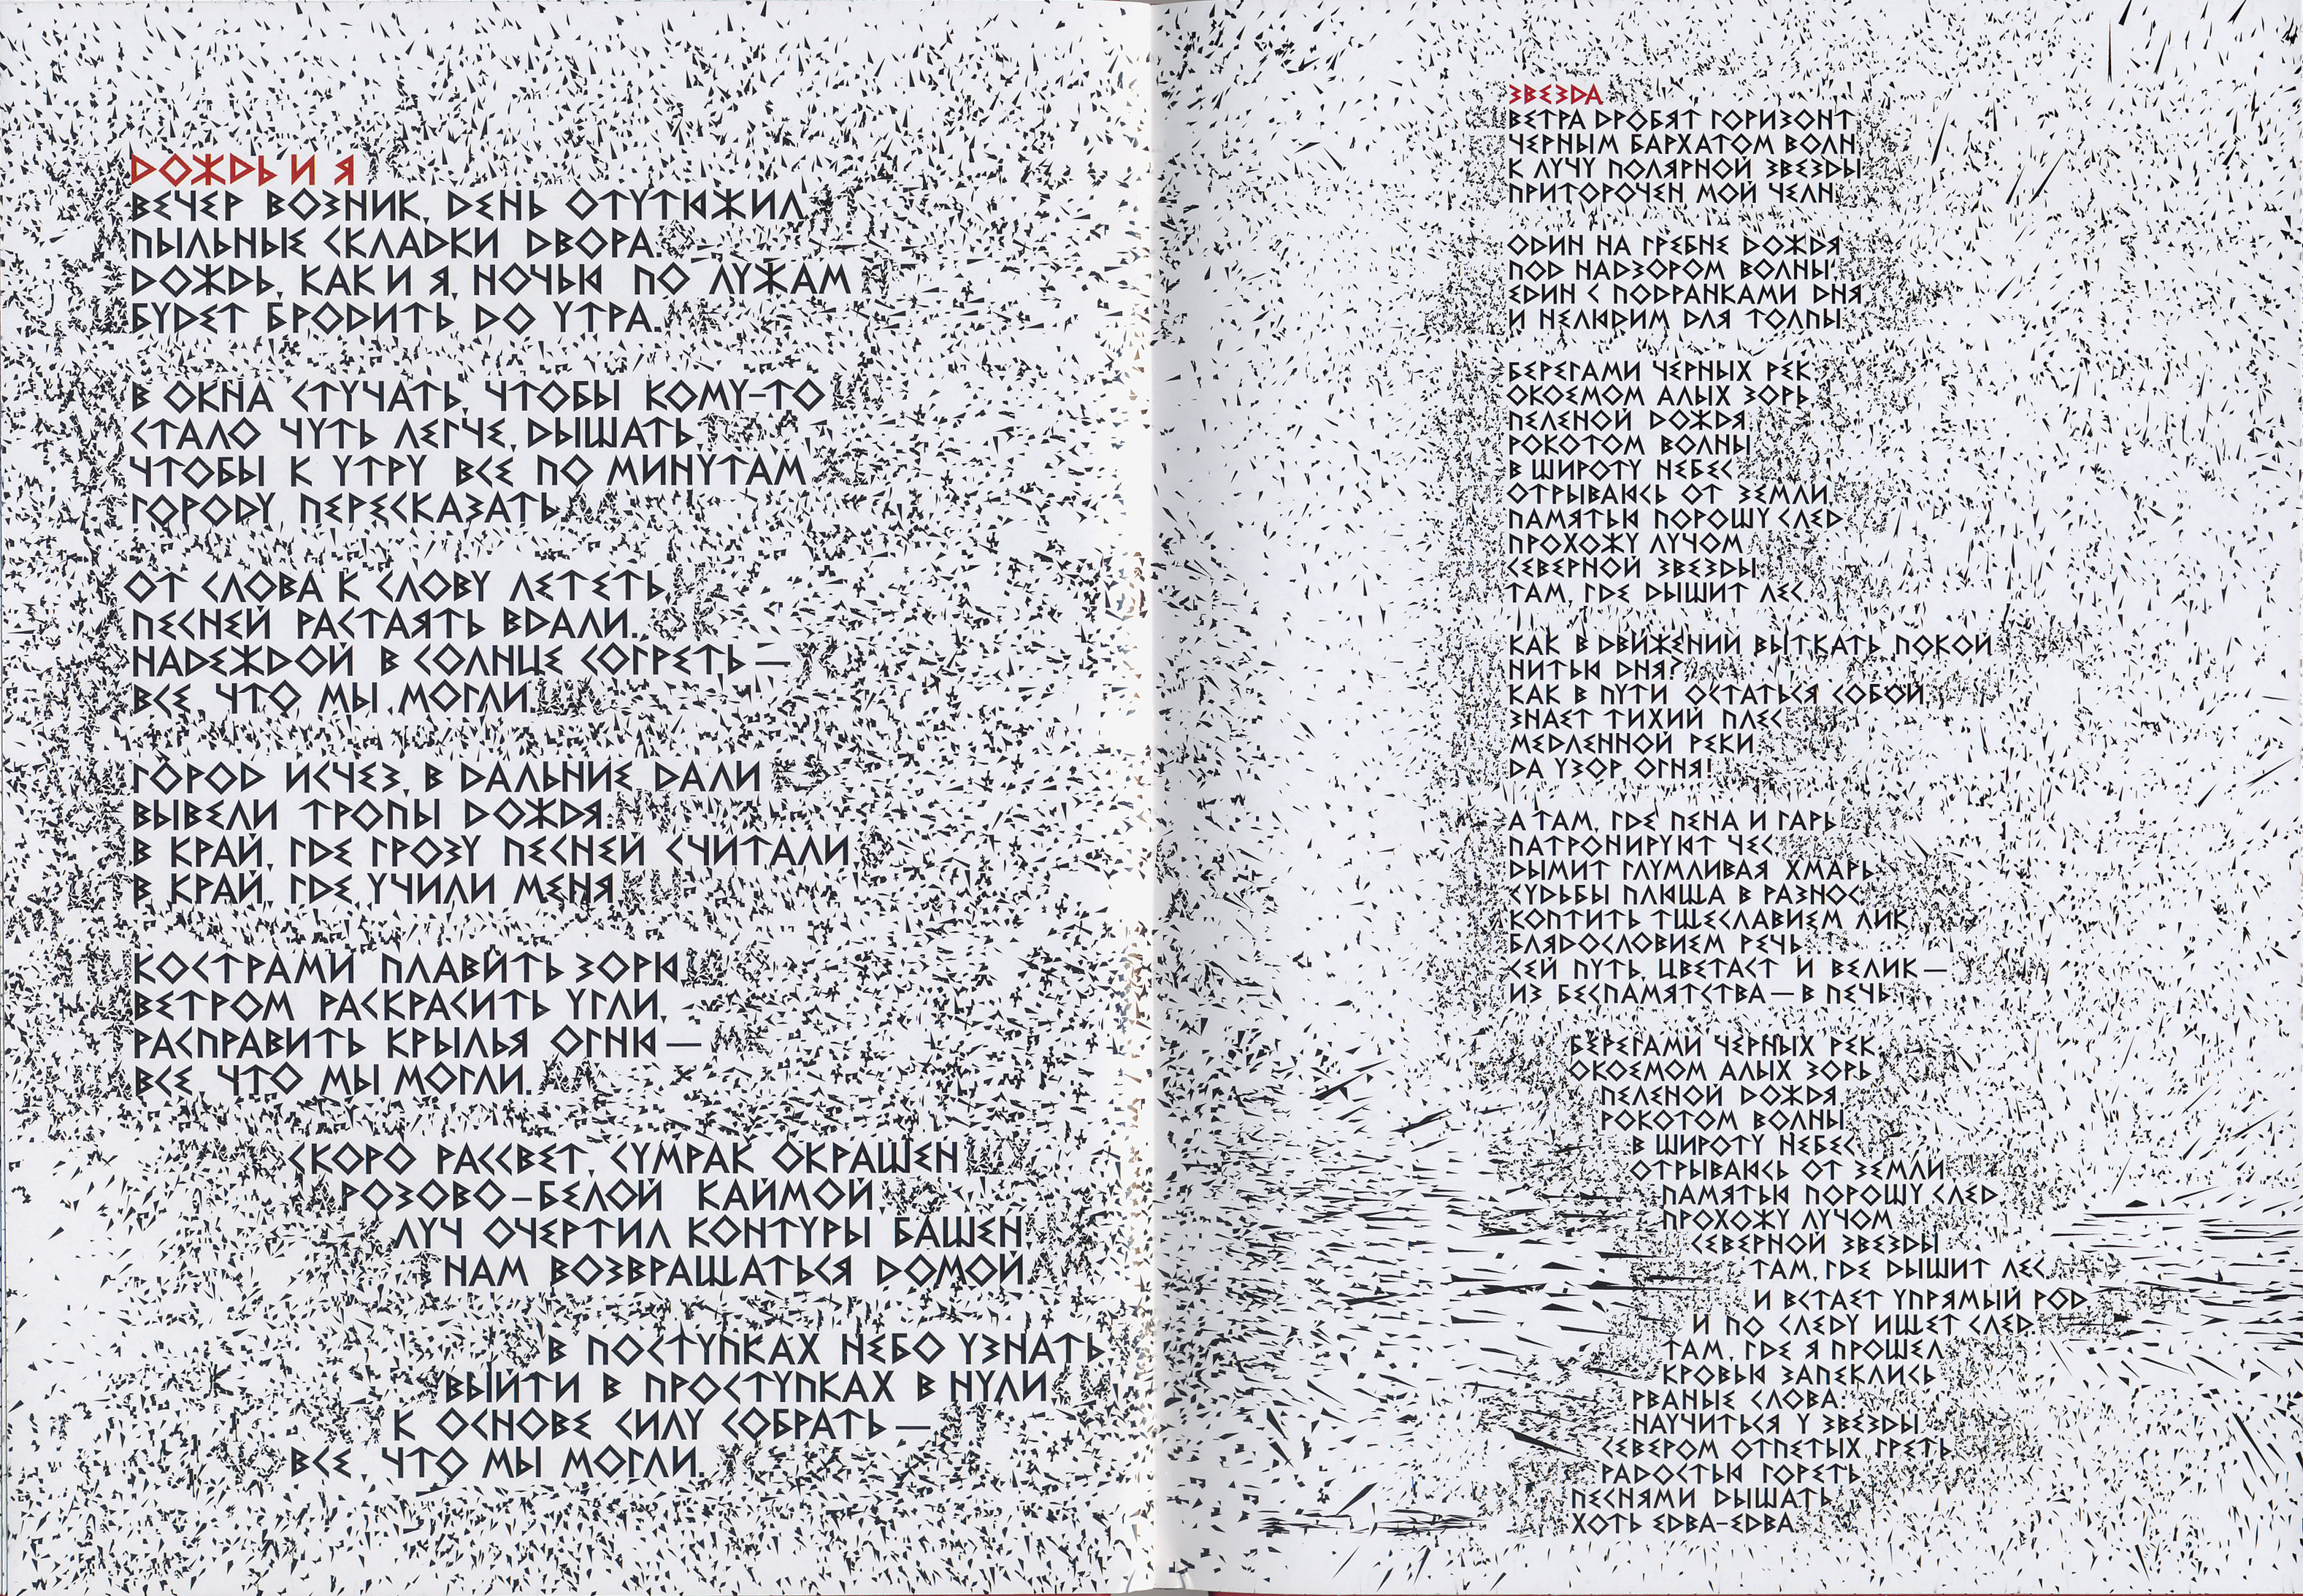 ДОЖДЬ И Я
ВЕЧЕР ВОЗНИК, ДЕНЬ ОТУТЮЖИЛ
ПЫЛЬНЫЕ СКЛАДКИ ДВОРА.
ДОЖДЬ, КАК И Я, НОЧЬЮ ПО ЛУЖАМ
БУДЕТ БРОДИТЬ ДО УТРА.
В ОКНА СТУЧАТЬ, ЧТОБЫ КОМУ-ТО
СТАЛО ЧУТЬ ЛЕГЧЕ ДЫШАТЬ,
ЧТОБЫ К УТРУ ВСЕ ПО МИНУТАМ
ГОРОДУ ПЕРЕСКАЗАТЬ.
ОТ СЛОВА К СЛОВУ ЛЕТЕТЬ,
ПЕСНЕЙ РАСТАЯТЬ ВДАЛИ.
НАДЕЖДОЙ В СОЛНЦЕ СОГРЕТЬ —
ВСЕ, ЧТО МЫ МОГЛИ.
ГОРОД ИСЧЕЗ, В ДАЛЬНИЕ ДАЛИ
ВЫВЕЛИ ТРОПЫ ДОЖДЯ.
В КРАЙ, ГДЕ ГРОЗУ ПЕСНЕЙ СЧИТАЛИ,
В КРАЙ, ГДЕ УЧИЛИ МЕНЯ
КОСТРАМИ ПЛАВИТЬ ЗОРЮ,
ВЕТРОМ РАСКРАСИТЬ УГЛИ,
РАСПРАВИТЬ КРЫЛЬЯ ОГНЮ —
ВСЕ, ЧТО МЫ МОГЛИ.
СКОРО РАССВЕТ, СУМРАК ОКРАШЕН
РОЗОВО-БЕЛОЙ КАЙМОЙ,
ЛУЧ ОЧЕРТИЛ КОНТУРЫ БАШЕН,
НАМ ВОЗВРАЩАТЬСЯ ДОМОЙ.
В ПОСТУПКАХ НЕБО УЗНАТЬ,
ВЫЙТИ В ПРОСТУПКАХ В НУЛИ
К ОСНОВЕ СИЛУ СОБРАТЬ —
ВСЕ, ЧТО МЫ МОГЛИ.
ЗВЕЗДА
ВЕТРА ДРОБЯТ ГОРИЗОНТ
ЧЕРНЫМ БАРХАТОМ ВОЛН,
К ЛУЧУ ПОЛЯРНОЙ ЗВЕЗДЫ
ПРИТОРОЧЕН МОЙ ЧЕЛН.
ОДИН НА ГРЕБНЕ ДОЖДЯ
ПОД НАДЗОРОМ ВОЛНЫ,
ЕДИН С ПОДРАНКАМИ ДНЯ
И НЕЛЮДИМ ДЛЯ ТОЛПЫ.
БЕРЕГАМИ ЧЕРНЫХ РЕК,
ОКОЕМОМ АЛЫХ ЗОРЬ,
ПЕЛЕНОЙ ДОЖДЯ,
РОКОТОМ ВОЛНЫ
В ШИРОТУ НЕБЕС
ОТРЫВАЮСЬ ОТ ЗЕМЛИ,
ПАМЯТЬЮ ПОРОШУ СЛЕД,
ПРОХОЖУ ЛУЧОМ
СЕВЕРНОЙ ЗВЕЗДЫ
ТАМ, ГДЕ ДЫШИТ ЛЕС.
КАК В ДВИЖЕНИИ ВЫТКАТЬ ПОКОЙ
НИТЬЮ ДНЯ?
КАК В ПУТИ ОСТАТЬСЯ СОБОЙ,
ЗНАЕТ ТИХИЙ ПЛЕС
МЕДЛЕННОЙ РЕКИ
ДА УЗОР ОГНЯ!
А ТАМ, ГДЕ ПЕНА И ГАРЬ
ПАТРОНИРУЮТ ЧЕС,
ДЫМИТ ГЛУМЛИВАЯ ХМАРЬ
СУДЬБЫ ПЛЮЩА В РАЗНОС,
КОПТИТЬ ТЩЕСЛАВИЕМ ЛИК,
БЛЯДОСЛОВИЕМ РЕЧЬ...
СЕЙ ПУТЬ, ЦВЕТАСТ И ВЕЛИК —
ИЗ БЕСПАМЯТСТВА — В ПЕЧЬ.
БЕРЕГАМИ ЧЕРНЫХ РЕК,
ОКОЕМОМ АЛЫХ ЗОРЬ,
ПЕЛЕНОЙ ДОЖДЯ,
РОКОТОМ ВОЛНЫ
В ШИРОТУ НЕБЕС
ОТРЫВАЮСЬ ОТ ЗЕМЛИ,
ПАМЯТЬЮ ПОРОШУ СЛЕД,
ПРОХОЖУ ЛУЧОМ
СЕВЕРНОЙ ЗВЕЗДЫ
ТАМ, ГДЕ ДЫШИТ ЛЕС,
И ВСТАЕТ УПРЯМЫЙ РОД,
И ПО СЛЕДУ ИЩЕТ СЛЕД.
ТАМ, ГДЕ Я ПРОШЕЛ,
КРОВЬЮ ЗАПЕКЛИСЬ
РВАНЫЕ СЛОВА:
НАУЧИТЬСЯ У ЗВЕЗДЫ
СЕВЕРОМ ОТПЕТЫХ ГРЕТЬ,
РАДОСТЬЮ ГОРЕТЬ,
ПЕСНЯМИ ДЫШАТЬ,
ХОТЬ ЕДВА-ЕДВА.